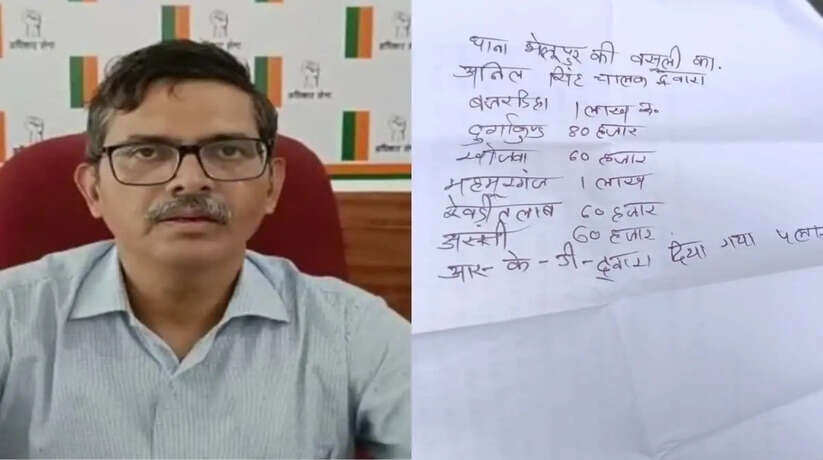 अधिकार सेना
अधिकार सेना
अधिकार सेना
थाना भेलूपुर की वसूली का.
अनिल सिंह चालक द्वारा
बजरडिहा 1 लाख रु.
दुर्गाकुण्ड 80 हजार
खोजवा 60 हजार
महमूरगंज 1 लाख
रेवड़ी तलाब 60 हजार
अस्सी 60 हजार
आर- के- डी- द्वारा दिया गया 5 लाख